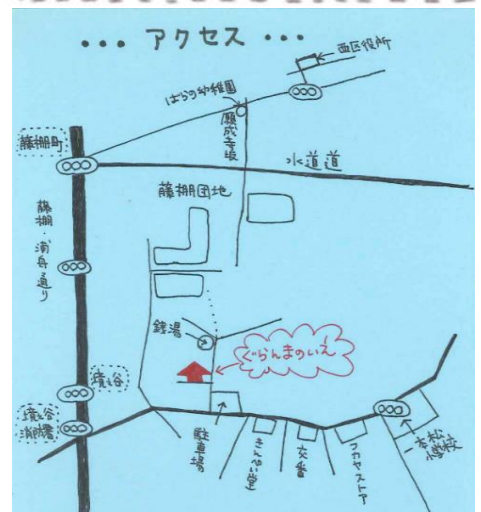 ・・・アクセス・・・
西区役所
ばらの幼稚園
願成寺坂
藤棚町
水道道
藤棚団地
藤棚・浦舟通り
銭湯
ぐらんまのいえ
境之谷
境之谷
消防署
駐車場
きんせい堂
交番
フカヤストア
一本松
小学校